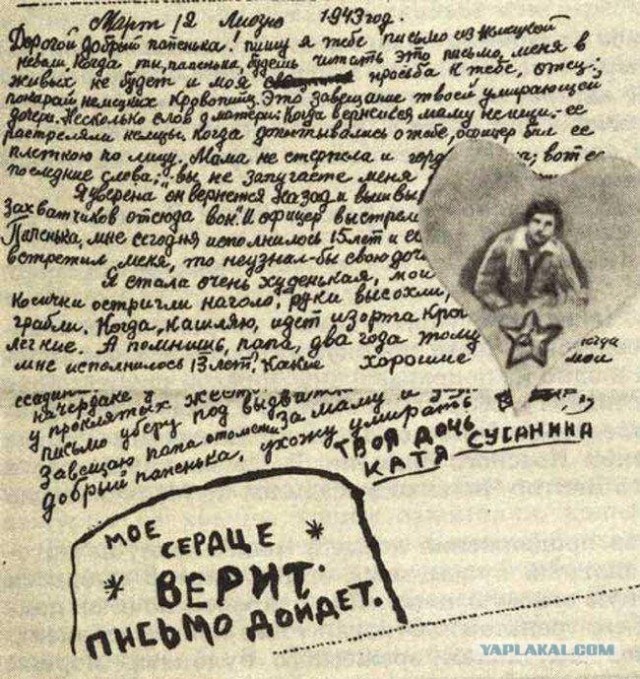 Март 12 Лиозно 1943 год.
Дорогой добрый папенька! пишу я тебе письмо из немецкой
неволи. Когда ты, папенька, будешь читать это письмо, меня в
живых не будет и моя просьба к тебе, отец:
покарай немецких кровопийц. Это завещание твоей умирающей
дочери. Несколько слов о матери: Когда вернешься маму не ищи. ее
растреляли немцы. Когда допытывались о тебе, офицер бил ее
плеткою по лицу. Мама не стерпела и горд ; вот ее
последние слова; "вы не запугаете меня
Я уверена он вернется назад и вышвы
захватчиков отсюда вон". И офицер выстрел
Папенька, мне сегодня исполнилось 15 лет и ес
встретил меня, то неузнал-бы свою доч
Я стала очень худенькая, мои
Косички остригли наголо, руки высохли,
грабли. Когда, кашляю, идет изо рта кро
легкие. А помнишь, папа, два года тому когда
мне исполнилось 13 лет! Какие хорошие мои
ссадин
на чердаке
у проклятых жест
письмо уберу под
Завещаю папа отомсти за маму и
добрый папенька, ухожу умирать
твоя дочь
Катя Сусанина
МОЕ
СЕРДЦЕ
ВЕРИТ.
ПИСЬМО ДОЙДЕТ.
YAPLAKAL.COM